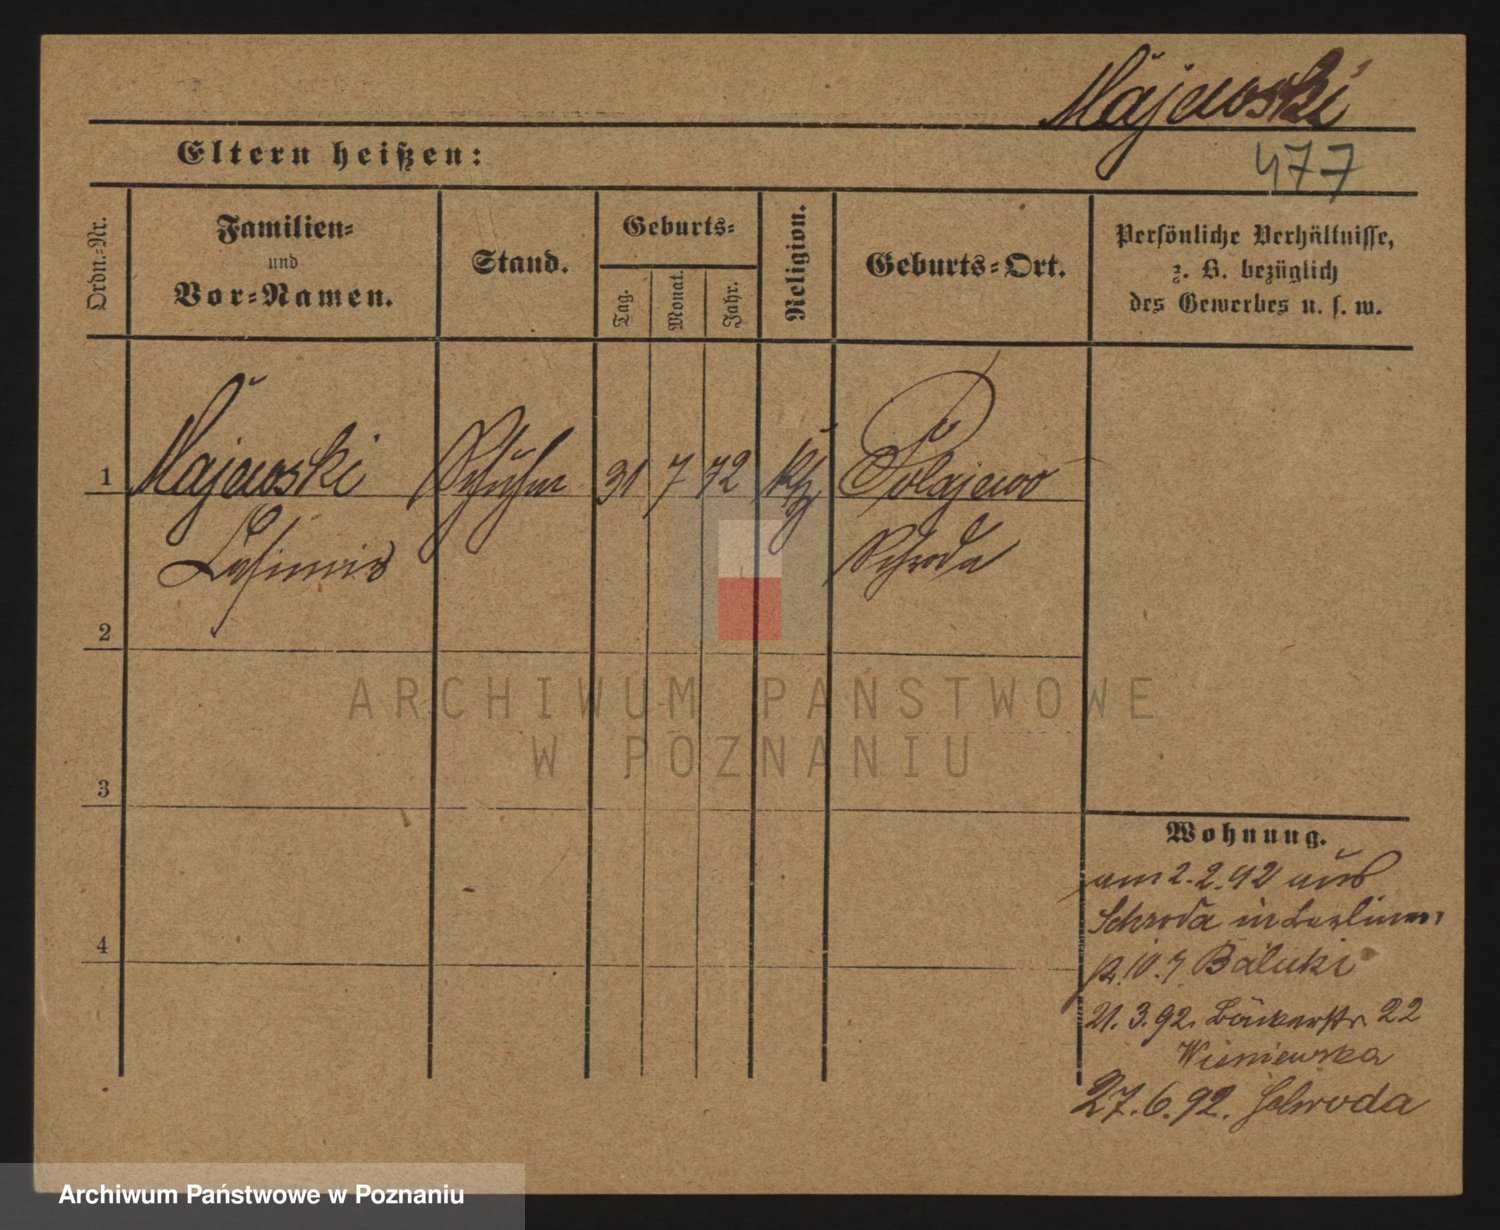 Majewski
477
Eltern heißen:
Ordn.-Nr.
Familien-
und
Vor-Namen.
Stand.
Geburts-
Tag.
Monat.
Jahr.
Religion.
Geburts-Ort.
Persönliche Verhältnisse,
z. B. bezüglich
des Gewerbes u. s. w.
1 Majewski Schuhm 31 7 72 kth Polajewo
Casimir Schroda
2
3
4
Wohnung.
am 2.2.92 aus
Schroda in Berliner
10. Baluki
21.3.92. Bäckerstr 22
Wisniewska
27.6.92. Schroda
ARCHIWUM PAŃSTWOWE
W POZNANIU
Archiwum Państwowe w Poznaniu